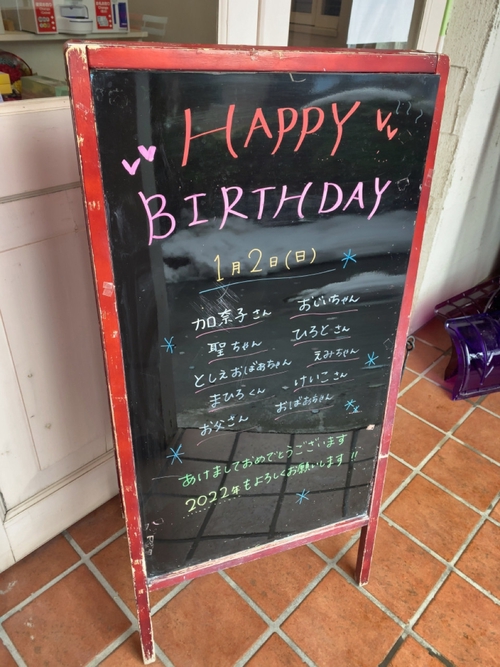 HAPPY
BIRTHDAY
1月2日(日)
加奈子さん おじいちゃん
聖ちゃん ひろとさん
としえおばあちゃん えみちゃん
まひろくん けいこさん
お父さん おばあちゃん
あけましておめでとうございます
2022年もよろしくお願いします!!